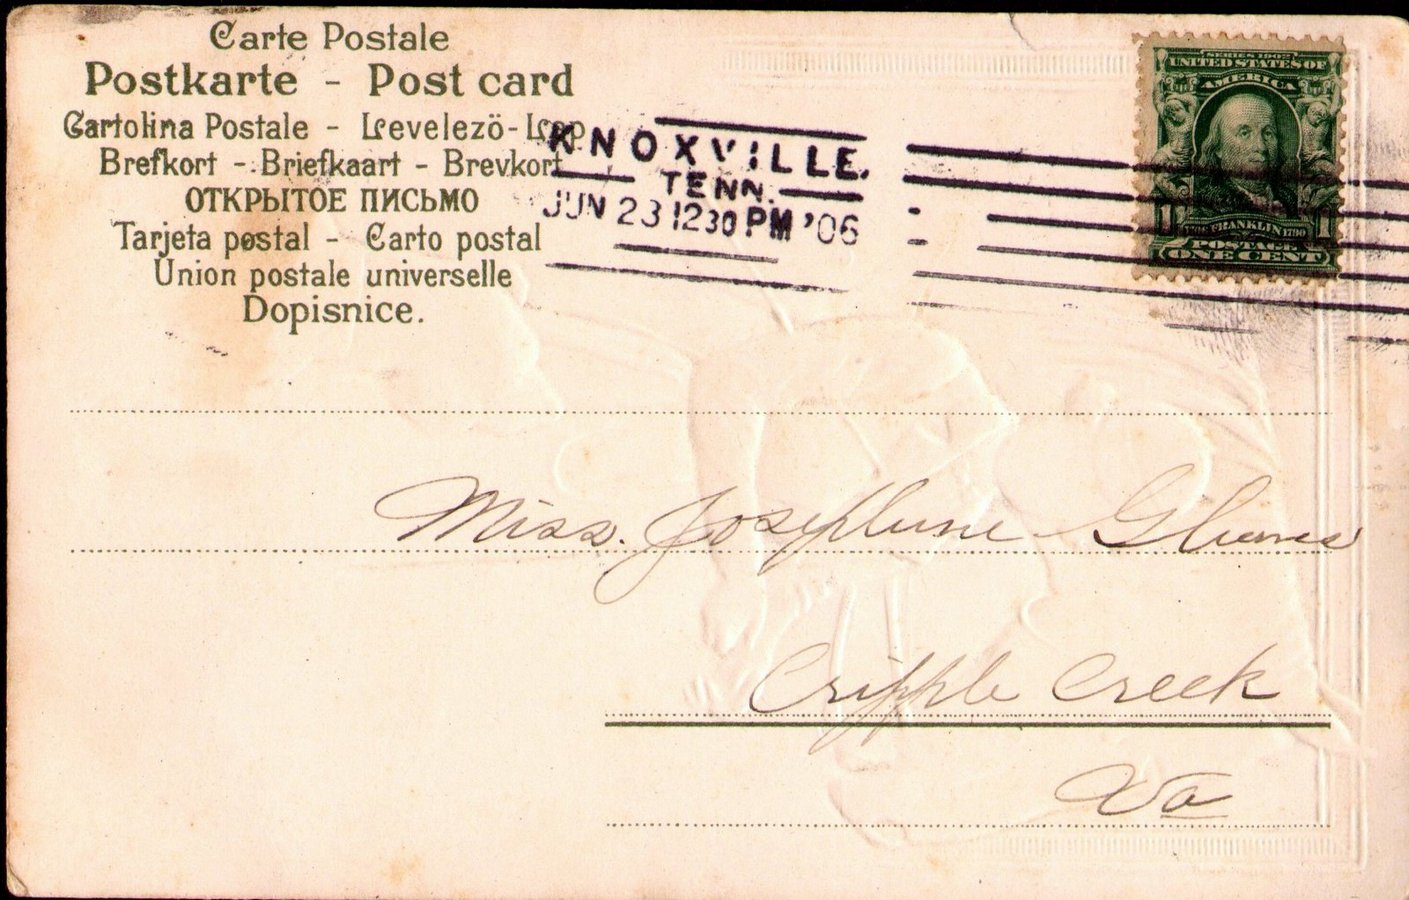 Carte Postale
Postkarte - Post card
Cartolina Postale - Levelezö-Lap
Brefkort - Briefkaart - Brevkort
ОТКРЫТОЕ ПИСЬМО
Tarjeta postal - Carto postal
Union postale universelle
Dopisnice.
KNOXVILLE.
TENN.
JUN 23 1230 PM '06
SERIES 1902
UNITED STATES OF
AMERICA
1 FRANKLIN 1790 1
POSTAGE
ONE CENT
Miss. Josephine
Cripple Creek
Va